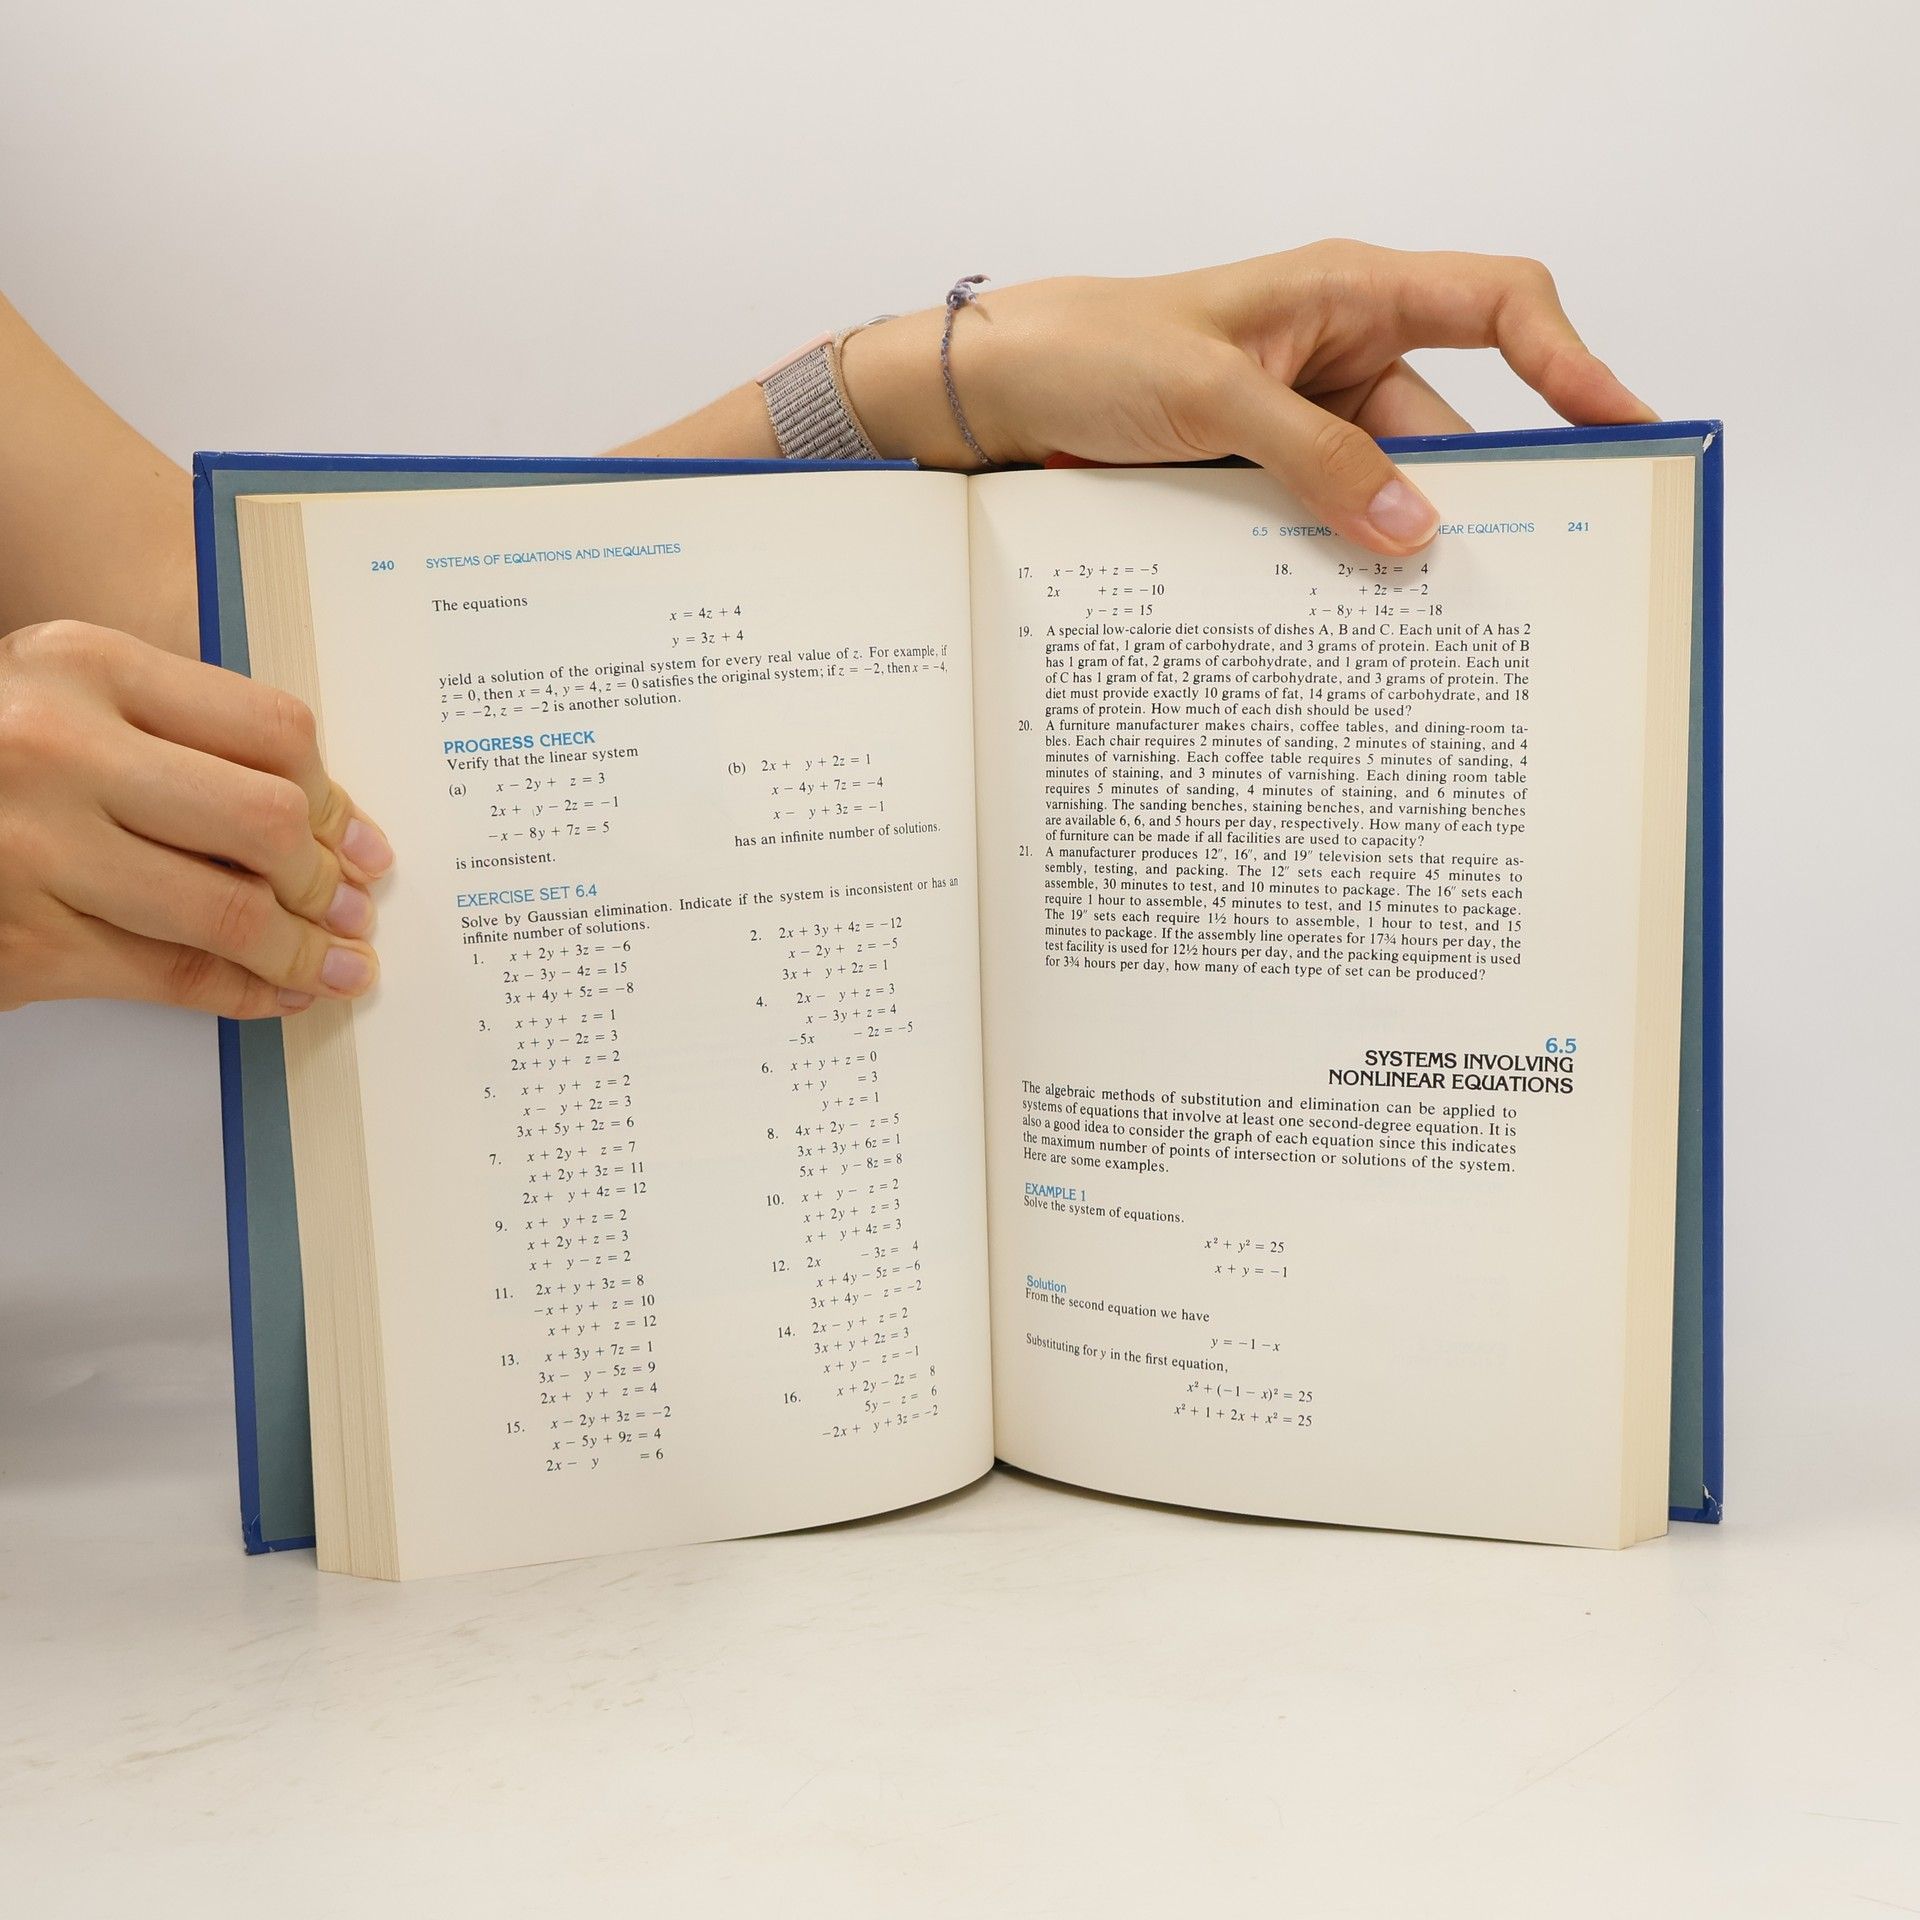 240 SYSTEMS OF EQUATIONS AND INEQUALITIES
The equations
x = 4z + 4
y = 3z + 4
yield a solution of the original system for every real value of z. For example, if
z = 0, then x = 4, y = 4, z = 0 satisfies the original system; if z = −2, then x = −4,
y = −2, z = −2 is another solution.
PROGRESS CHECK
Verify that the linear system
(a) x − 2y + z = 3
2x + y − 2z = −1
−x − 8y + 7z = 5
is inconsistent.
(b) 2x + y + 2z = 1
x − 4y + 7z = −4
x − y + 3z = −1
has an infinite number of solutions.
EXERCISE SET 6.4
Solve by Gaussian elimination. Indicate if the system is inconsistent or has an
infinite number of solutions.
1. x + 2y + 3z = −6
2x − 3y − 4z = 15
3x + 4y + 5z = −8
2. 2x + 3y + 4z = −12
x − 2y + z = −5
3x + y + 2z = 1
3. x + y + z = 1
x + y − 2z = 3
2x + y + z = 2
4. 2x − y + z = 3
x − 3y + z = 4
−5x − 2z = −5
5. x + y + z = 2
x − y + 2z = 3
3x + 5y + 2z = 6
6. x + y + z = 0
x + y = 3
y + z = 1
7. x + 2y + z = 7
x + 2y + 3z = 11
2x + y + 4z = 12
8. 4x + 2y − z = 5
3x + 3y + 6z = 1
5x + y − 8z = 8
9. x + y + z = 2
x + 2y + z = 3
x + y − z = 2
10. x + y − z = 2
x + 2y + z = 3
x + y + 4z = 3
11. 2x + y + 3z = 8
−x + y + z = 10
x + y + z = 12
12. 2x − 3z = 4
x + 4y − 5z = −6
3x + 4y − z = −2
13. x + 3y + 7z = 1
3x − y − 5z = 9
2x + y + z = 4
14. 2x − y + z = 2
3x + y + 2z = 3
x + y − z = −1
15. x − 2y + 3z = −2
x − 5y + 9z = 4
2x − y = 6
16. x + 2y − 2z = 8
5y − z = 6
−2x + y + 3z = −2
6.5 SYSTEMS EAR EQUATIONS 241
17. x − 2y + z = −5
2x + z = −10
y − z = 15
18. 2y − 3z = 4
x + 2z = −2
x − 8y + 14z = −18
19. A special low-calorie diet consists of dishes A, B and C. Each unit of A has 2
grams of fat, 1 gram of carbohydrate, and 3 grams of protein. Each unit of B
has 1 gram of fat, 2 grams of carbohydrate, and 1 gram of protein. Each unit
of C has 1 gram of fat, 2 grams of carbohydrate, and 3 grams of protein. The
diet must provide exactly 10 grams of fat, 14 grams of carbohydrate, and 18
grams of protein. How much of each dish should be used?
20. A furniture manufacturer makes chairs, coffee tables, and dining-room ta-
bles. Each chair requires 2 minutes of sanding, 2 minutes of staining, and 4
minutes of varnishing. Each coffee table requires 5 minutes of sanding, 4
minutes of staining, and 3 minutes of varnishing. Each dining room table
requires 5 minutes of sanding, 4 minutes of staining, and 6 minutes of
varnishing. The sanding benches, staining benches, and varnishing benches
are available 6, 6, and 5 hours per day, respectively. How many of each type
of furniture can be made if all facilities are used to capacity?
21. A manufacturer produces 12″, 16″, and 19″ television sets that require as-
sembly, testing, and packing. The 12″ sets each require 45 minutes to
assemble, 30 minutes to test, and 10 minutes to package. The 16″ sets each
require 1 hour to assemble, 45 minutes to test, and 15 minutes to package.
The 19″ sets each require 1½ hours to assemble, 1 hour to test, and 15
minutes to package. If the assembly line operates for 17¾ hours per day, the
test facility is used for 12½ hours per day, and the packing equipment is used
for 3¾ hours per day, how many of each type of set can be produced?
6.5
SYSTEMS INVOLVING
NONLINEAR EQUATIONS
The algebraic methods of substitution and elimination can be applied to
systems of equations that involve at least one second-degree equation. It is
also a good idea to consider the graph of each equation since this indicates
the maximum number of points of intersection or solutions of the system.
Here are some examples.
EXAMPLE 1
Solve the system of equations.
x² + y² = 25
x + y = −1
Solution
From the second equation we have
y = −1 − x
Substituting for y in the first equation,
x² + (−1 − x)² = 25
x² + 1 + 2x + x² = 25